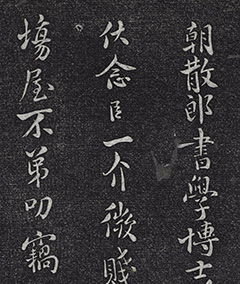 朝散郎書學博士
伏念臣一介微賤
場屋不弟叨竊